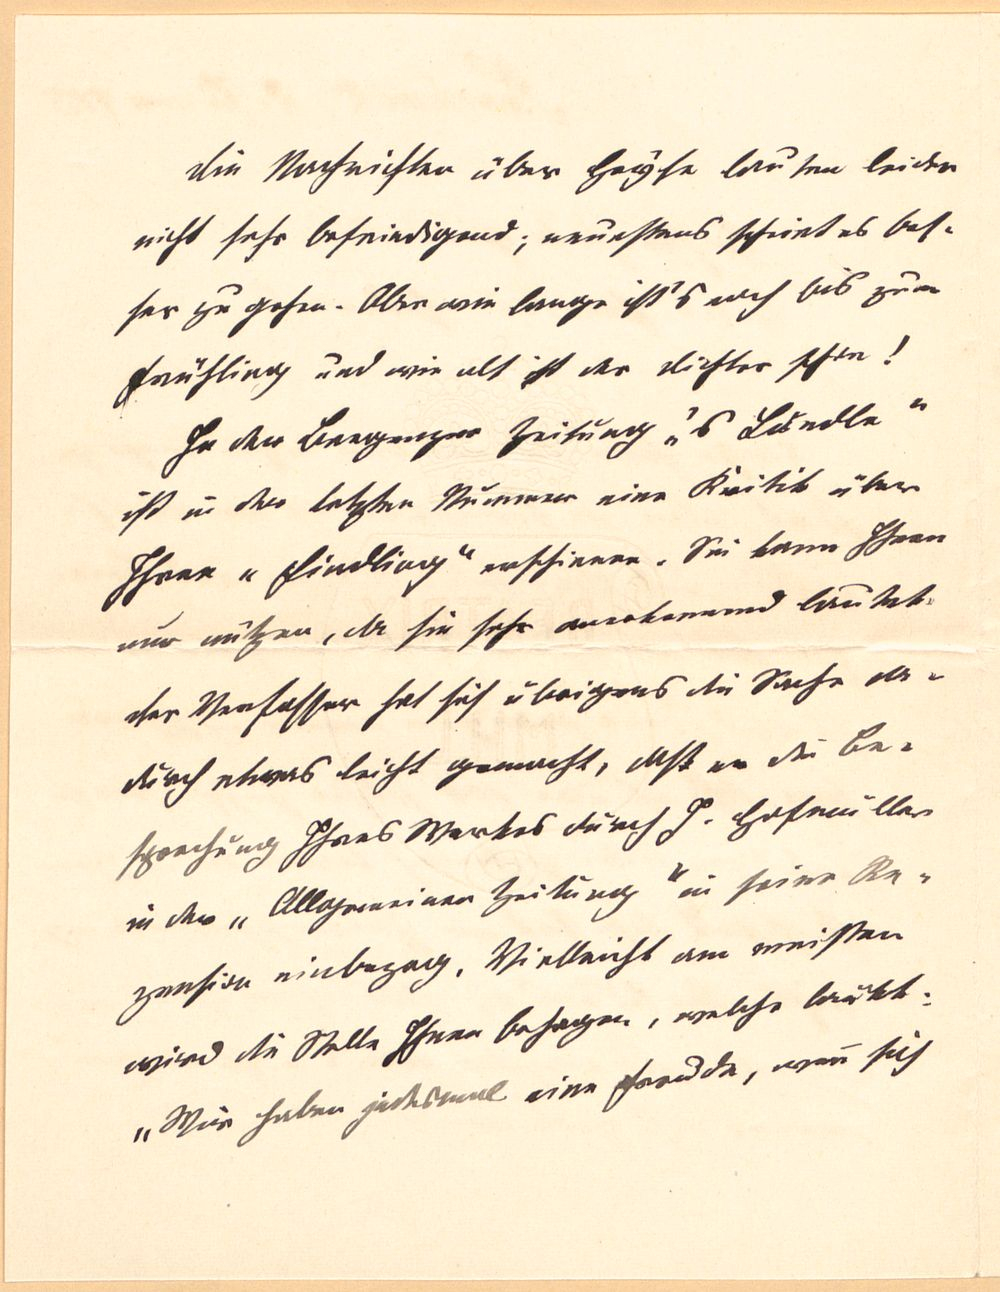 Die Nachrichten über Heyse lauten leider
nicht sehr befriedigend; neuestens scheint es bes-
ser zu gehen. Aber wie lange ist's noch bis zum
Frühling und wie alt ist der Dichter schon!
In der Bregenzer Zeitung „'s Ländle"
ist in der letzten Nummer eine Kritik über
Ihren „Findling" erschienen. Sie kann Ihnen
nur nützen, da sie sehr anerkennend lautet.
Der Verfasser hat sich übrigens die Sache da-
durch etwas leicht gemacht, dass er die Be-
sprechung Ihres Werkes durch J. Hofmiller
in der „Allgemeinen Zeitung" in seine Re-
zension einbezog. Vielleicht am meisten
wird die Stelle Ihnen behagen, welche lautet:
„Wir haben jedesmal eine Freude, wenn sich